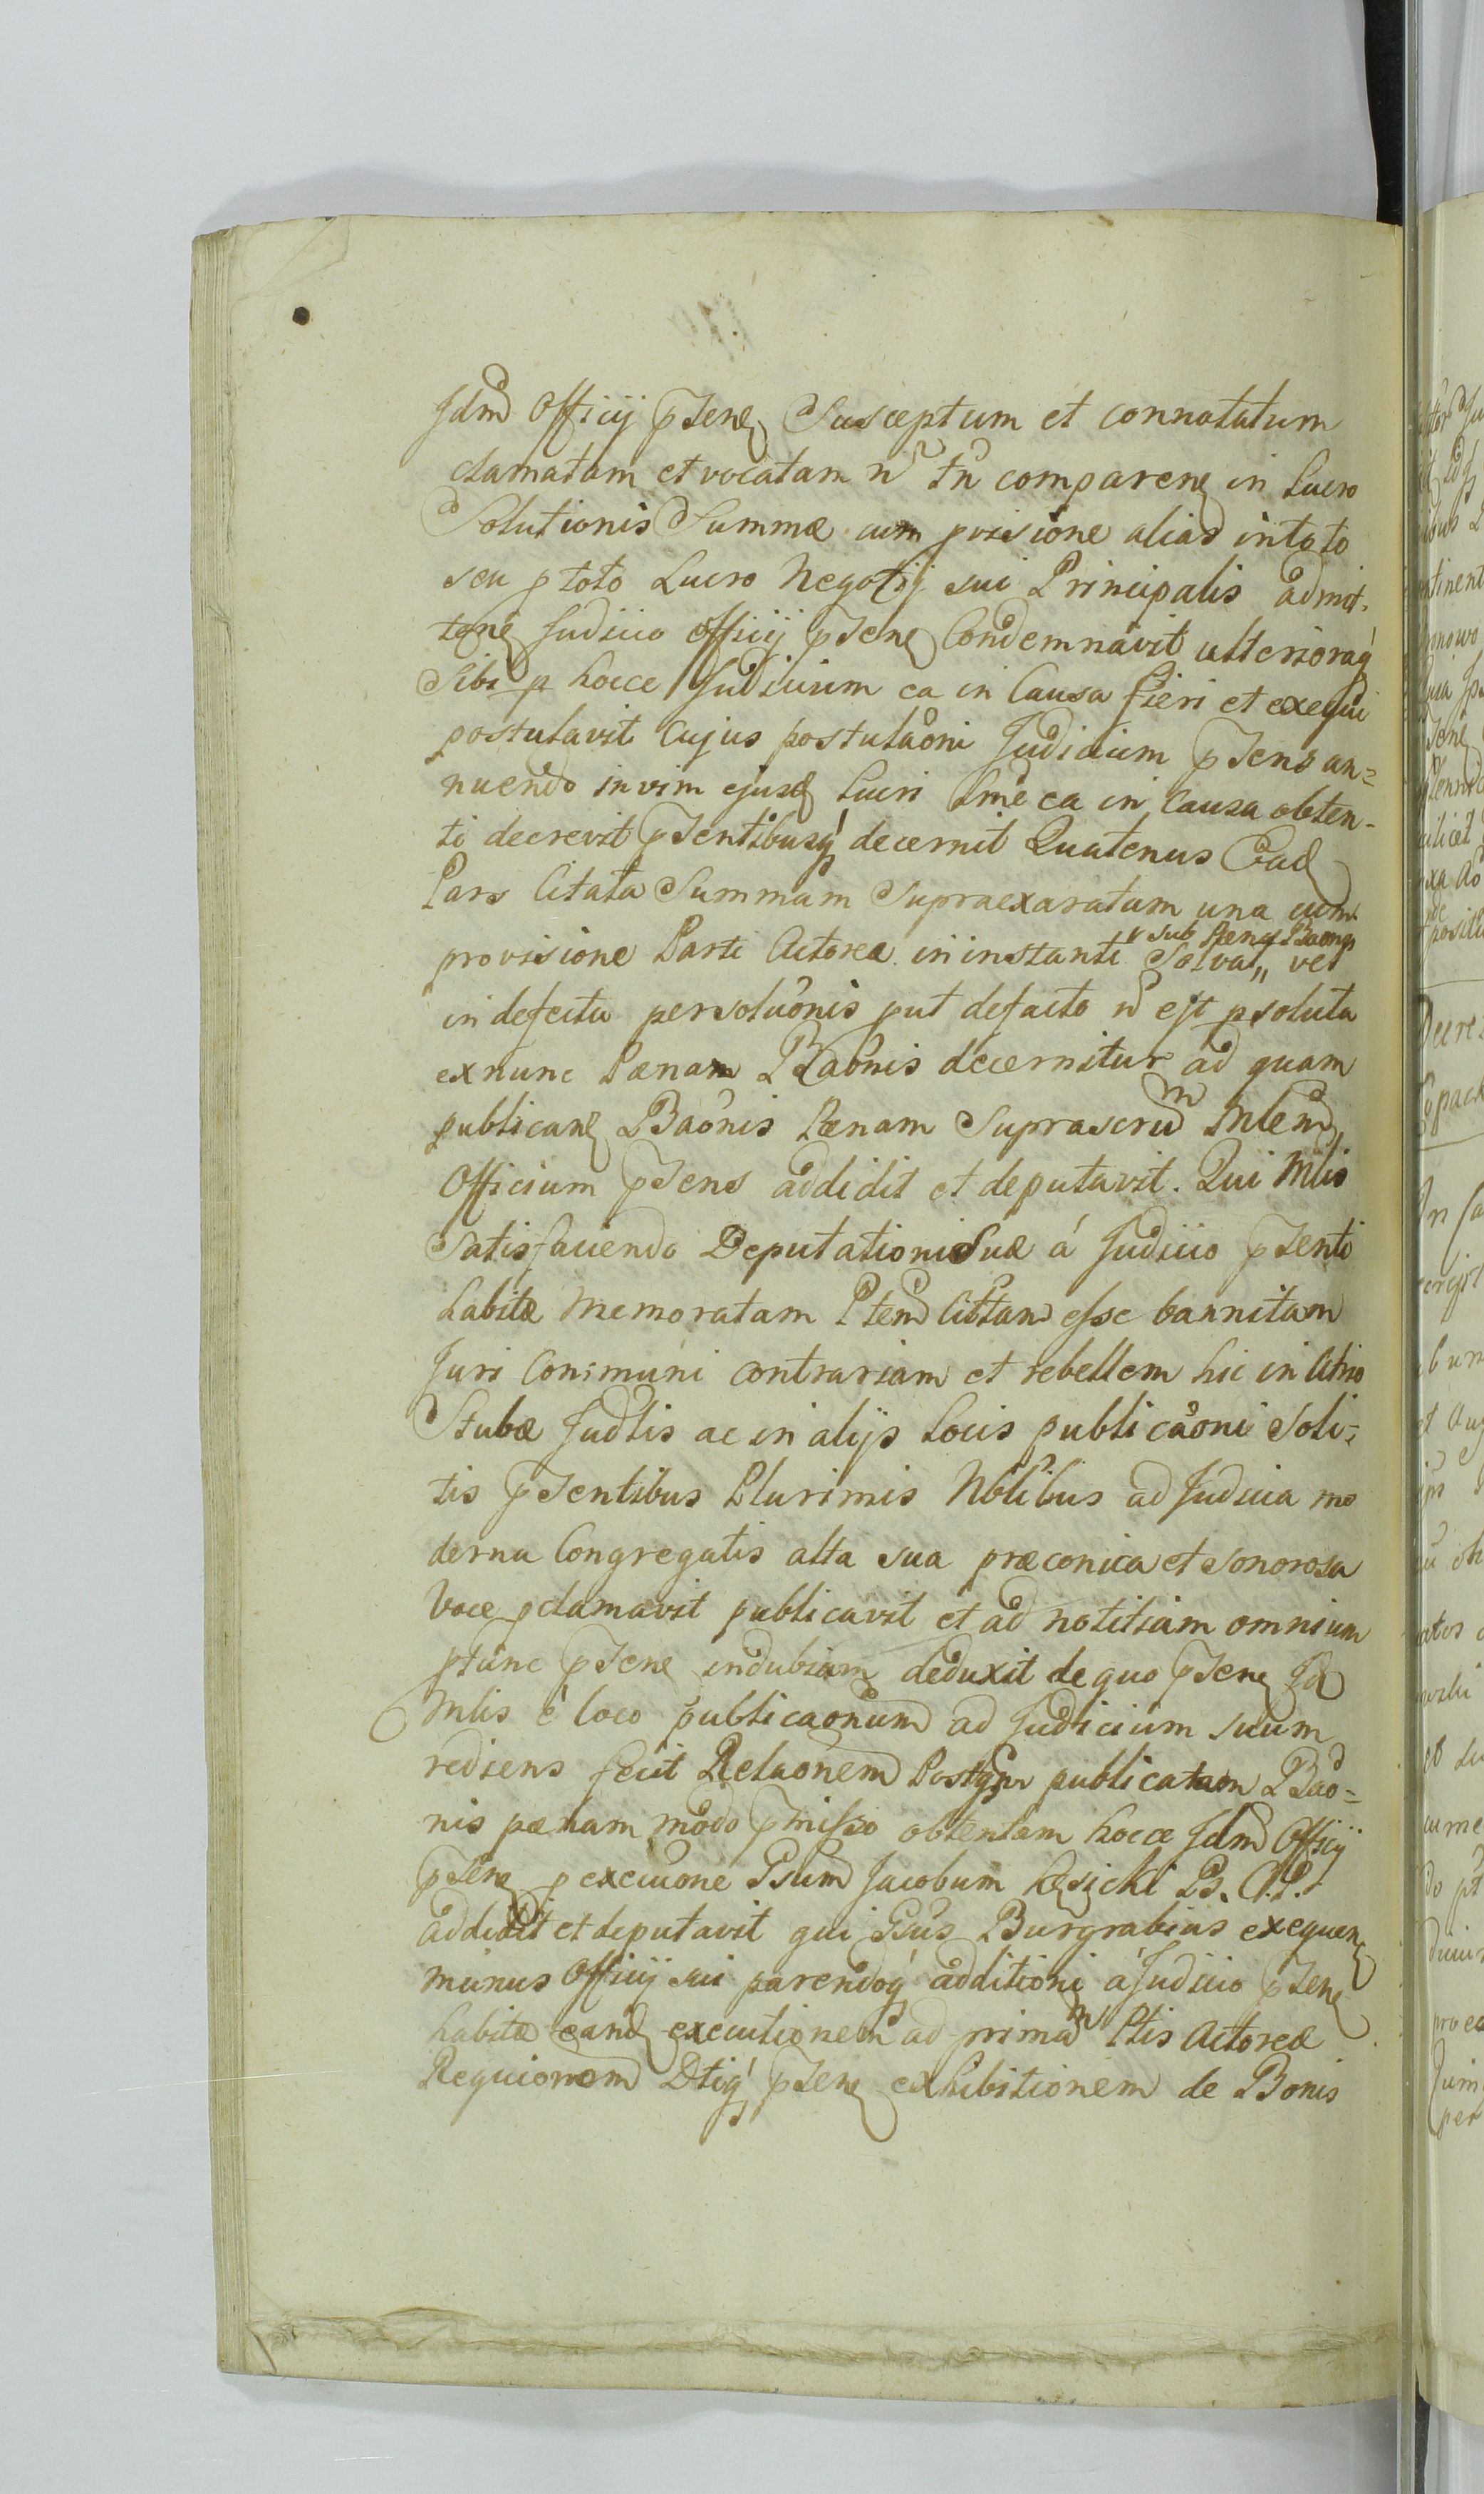 Jdm Officij pntens Susceptum et connotatum
clamatam et vocatam n̄ tn̄ comparen in lucro
Solutionis Summæ cum pvisione alias in toto
seu p toto Lucro Negotij sui Principalis admit-
ten Judicio officij psen Condemnavit ulterioraq
Sibi p hocce Judicium ea in Causa fieri et exequi
postulavit Cujus postulaoni Judicium psens an=
nuendo in vim ejusd lucri Sme ea in Causa obten-
ti decrevit psentibusq decernit Quatenus Ead
Pars Citata Summam Supraexaratam una cum
provisione Parti Actoreæ in instanti Solvat,, vel
v sub Pæna Baonis
in defectu persoluonis put defacto n̄ est psoluta
exnunc Pænam Baonis decernitur ad quam
publicand Baonis Pænam Suprascrm Mlem
Officium psens addidit et deputavit. Qui Mlis
Satisfaciendo Deputationi Suæ á Judicio psenti
habitæ memoratam Ptem Cittam esse bannitam
Juri Communi contrariam et rebellem hic in Atrio
Stubæ Judlis ac in alijs locis publicaoni Soli=
tis psentibus Plurimis Nblibus ad Judicia mo
derna Congregatis alta sua præconica et sonorosa
Voce pclamavit publicavit et ad notitiam omnium
ptunc psen indubiam deduxit de quo psen Id
Mlis é loco publicaonum ad Judicium suum
rediens fecit Relaonem Postqm publicatam Bao=
nis pænam modo pmisso obtentam hocce Jdm Officij
psen p execuone Gsum Jacobum Kęsicki B. C. P.
addidit et deputavit qui Gsus Burgrabius exequen
munus Officij sui parendoq additioni á Judicio psen
habitæ eand executionem ad primam Ptis Actoreæ
Requionem Dtiq psen exhibitionem de Bonis